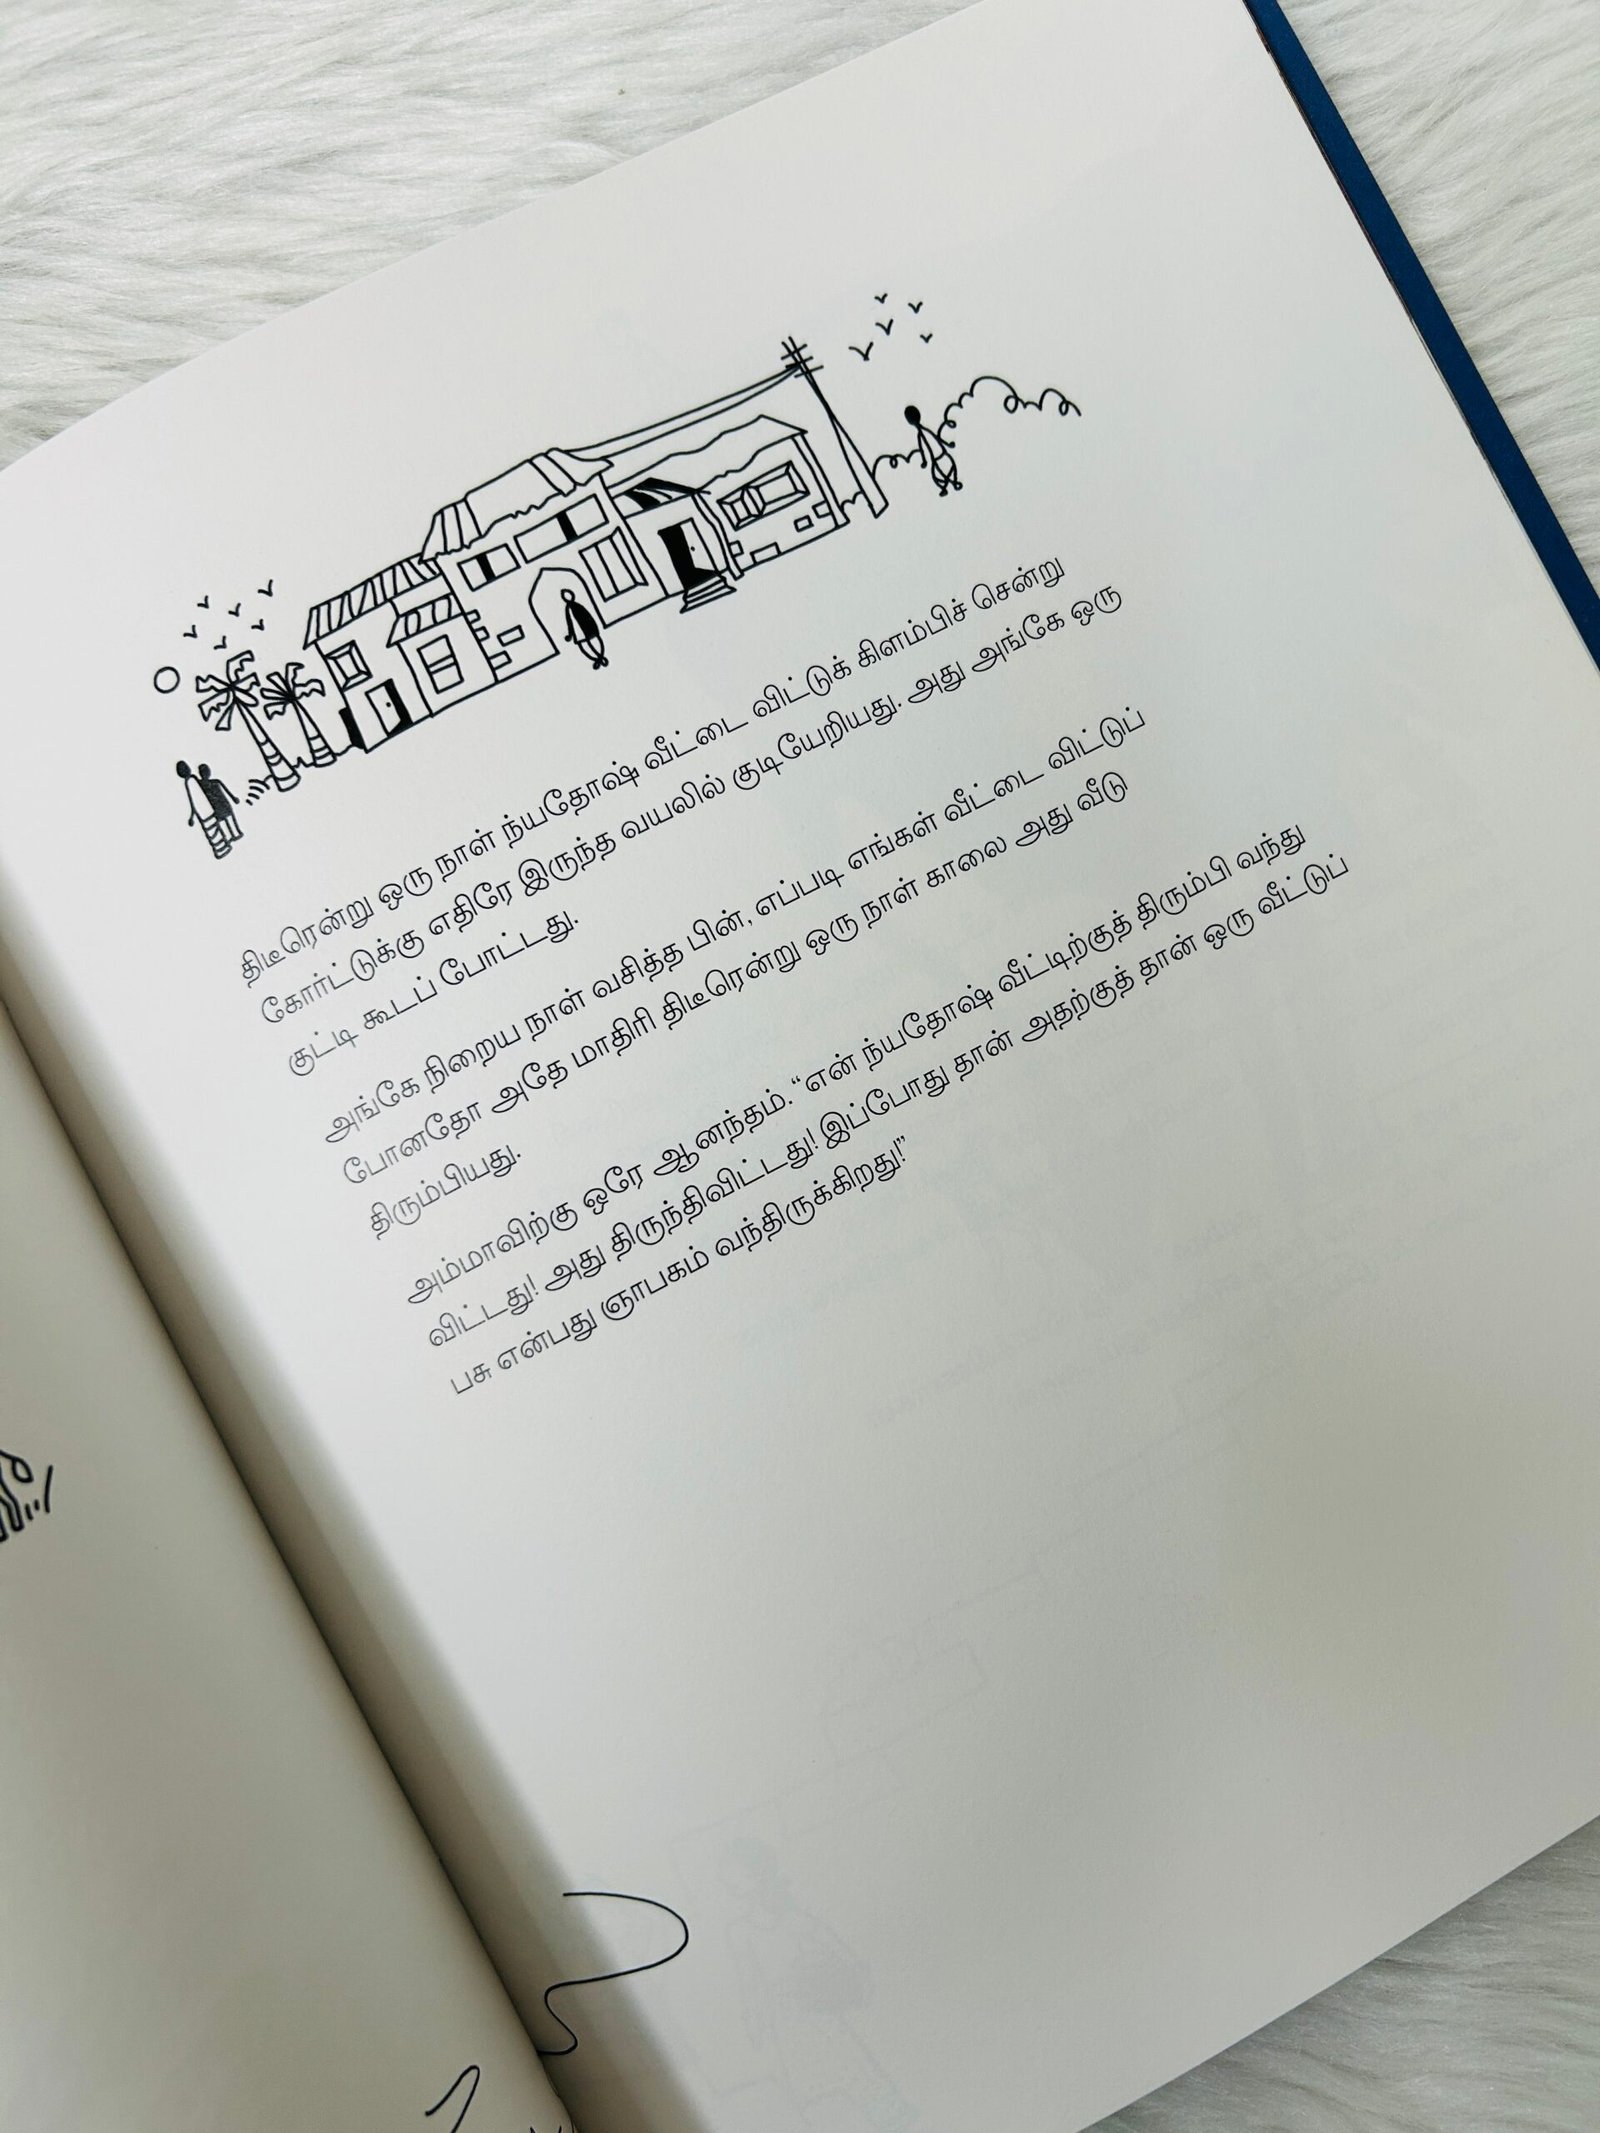 திடீரென்று ஒரு நாள் ந்யதோஷ் வீட்டை விட்டுக் கிளம்பிச் சென்று
கோர்ட்டுக்கு எதிரே இருந்த வயலில் குடியேறியது. அது அங்கே ஒரு
குட்டி கூடப் போட்டது.
அங்கே நிறைய நாள் வசித்த பின், எப்படி எங்கள் வீட்டை விட்டுப்
போனதோ அதே மாதிரி திடீரென்று ஒரு நாள் காலை அது வீடு
திரும்பியது.
அம்மாவிற்கு ஒரே ஆனந்தம். “என் ந்யதோஷ் வீட்டிற்குத் திரும்பி வந்து
விட்டது! அது திருந்திவிட்டது! இப்போது தான் அதற்குத் தான் ஒரு வீட்டுப்
பசு என்பது ஞாபகம் வந்திருக்கிறது!”